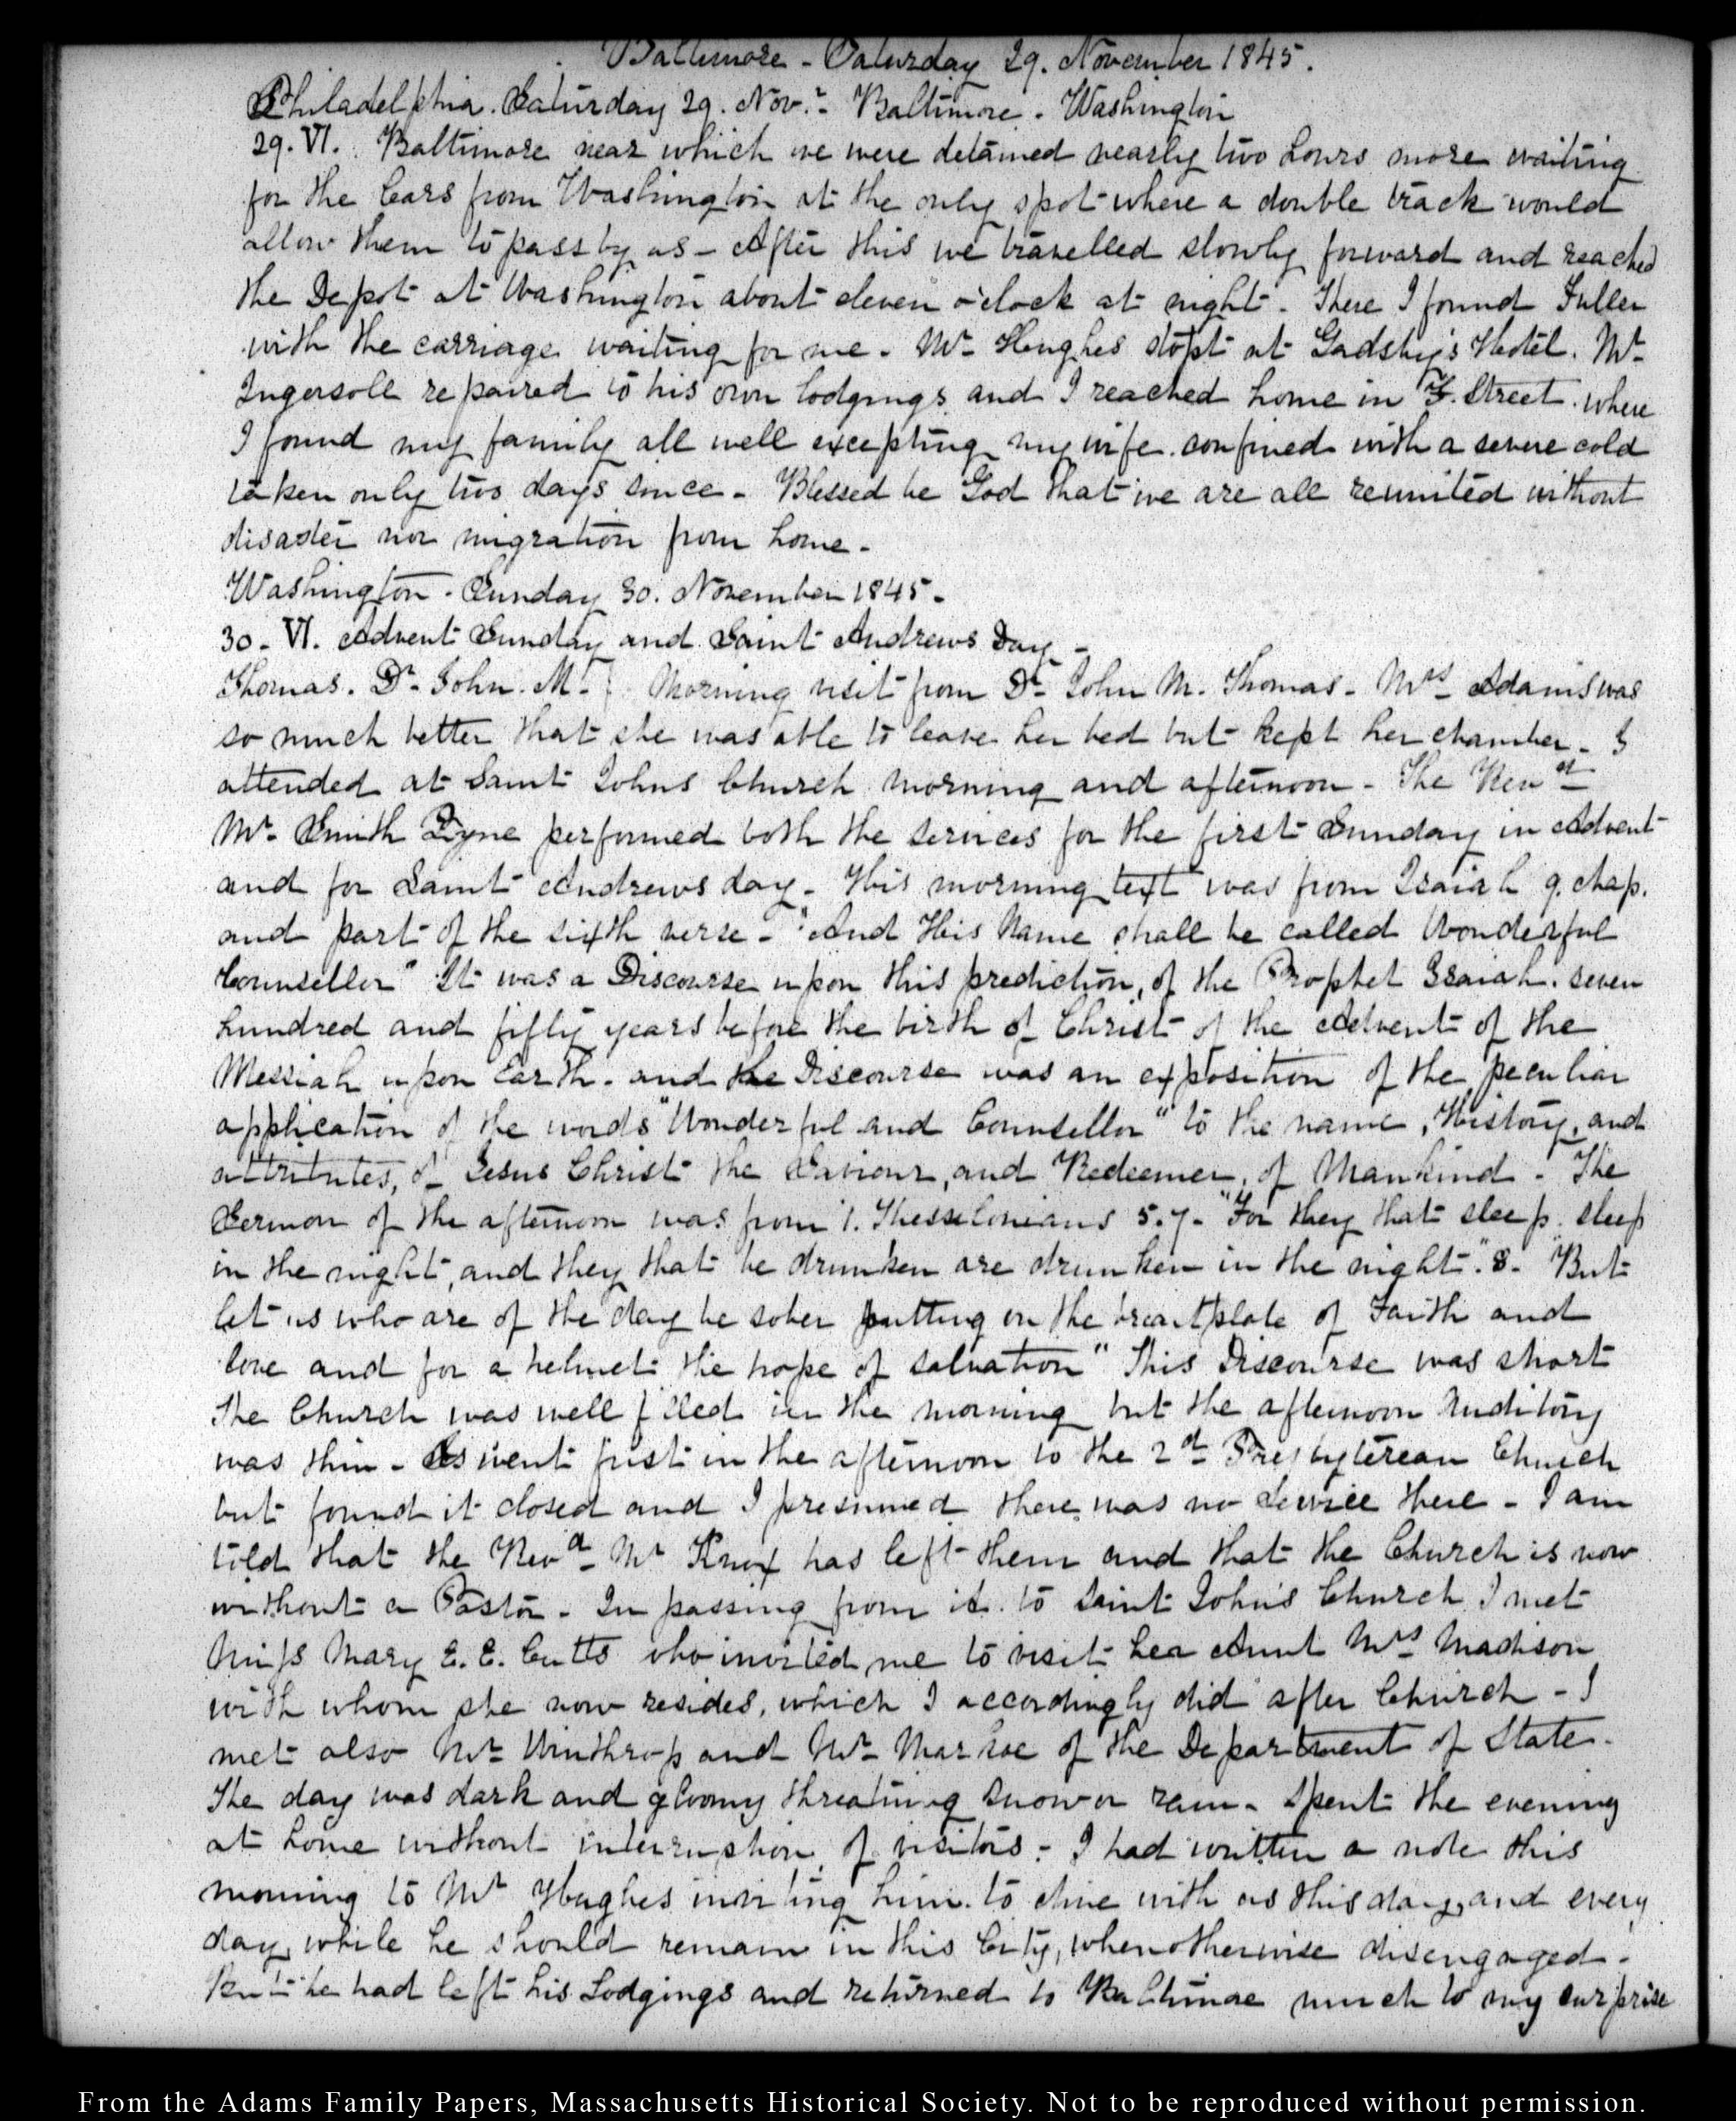 Baltimore - Saturday 29. November 1845.
Philadelphia. Saturday 29. Novr. - Baltimore - Washington
29. VI. Baltimore near which we were detained nearly two hours more waiting
for the Cars from Washington at the only spot where a double track would
allow them to pass by us - After this we travelled slowly forward and reached
the Depot at Washington about eleven o'clock at night - There I found Fuller
with the carriage waiting for me - Mr. Hughes stopt at Gadsby's Hotel. Mr.
Ingersoll repaired to his own lodgings and I reached home in F. Street where
I found my family all well excepting my wife confined with a severe cold
taken only two days since - Blessed be God that we are all reunited without
disaster nor migration from home -
Washington - Sunday 30. November 1845 -
30 - VI. Advent Sunday and Saint Andrews Day -
Thomas. Dr. John. M. Morning visit from Dr. John M. Thomas - Mrs. Adams was
so much better that she was able to leave her bed but kept her chamber - I
attended at Saint Johns Church morning and afternoon - The Revd.
Mr. Smith Pyne performed both the services for the first Sunday in Advent
and for Saint Andrews day - His morning text was from Isaiah 9. chap.
and part of the sixth verse - "And His Name shall be called Wonderful
Counsellor" It was a Discourse upon this prediction, of the Prophet Isaiah. seven
hundred and fifty years before the birth of Christ of the Advent of the
Messiah upon Earth - and the Discourse was an exposition of the peculiar
application of the words "Wonderful and Counsellor" to the name, History, and
attributes, of Jesus Christ the Saviour, and Redeemer, of Mankind - The
Sermon of the afternoon was from 1. Thessalonians 5.7 - "For they that sleep sleep
in the night, and they that be drunken are drunken in the night". 8. "But
let us who are of the day be sober putting on the breastplate of Faith and
love and for a helmet the hope of salvation" This Discourse was short
The Church was well filled in the morning but the afternoon Auditory
was thin - went first in the afternoon to the 2d. Presbyterean Church
but found it closed and I presumed there was no Service there - I am
told that the Revd. Mr. Knox has left them and that the Church is now
without a Pastor - In passing from it to Saint John's Church I met
Miss Mary E. E. Cutts who invited me to visit her Aunt Mrs. Madison
with whom she now resides, which I accordingly did after Church - I
met also Mr. Winthrop and Mr. Markoe of the Department of State -
The day was dark and gloomy threatning snow or rain - Spent the evening
at home without interruption of visitors - I had written a note this
morning to Mr. Hughes inviting him to dine with us this day, and every
day, while he should remain in this City, when otherwise disengaged -
But he had left his Lodgings and returned to Baltimore much to my surprise
From the Adams Family Papers, Massachusetts Historical Society. Not to be reproduced without permission.